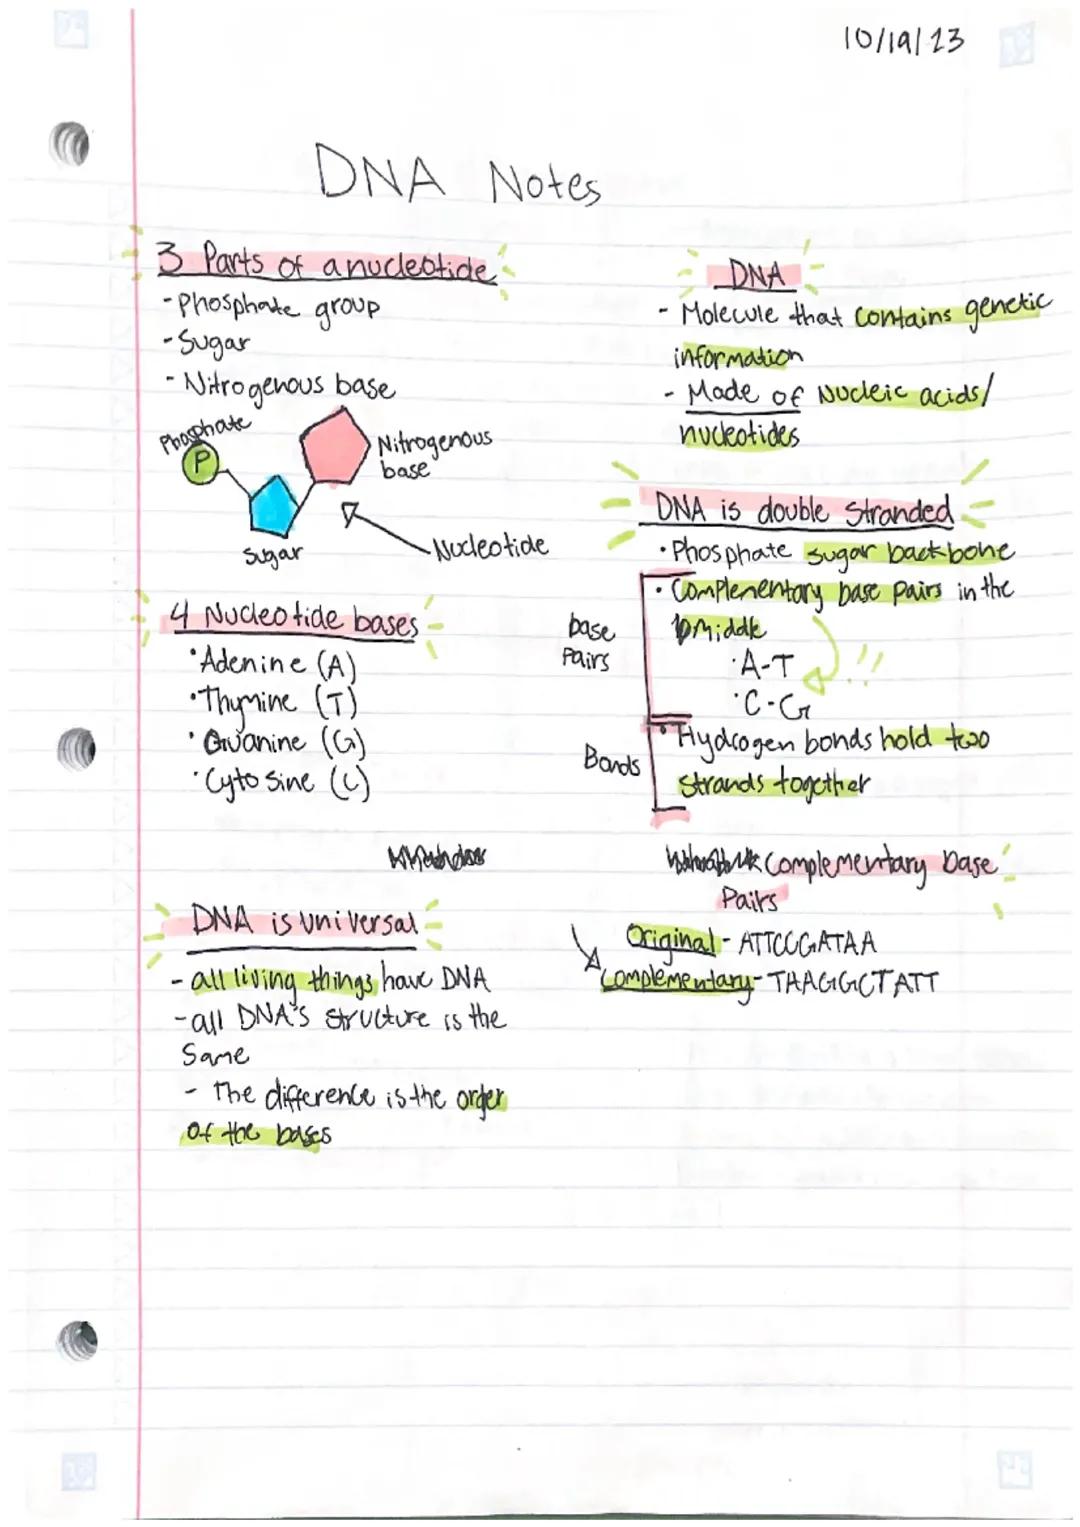 10/19/23
DNA Notes
3 Parts of a nucleotide
- Phosphate group
- Sugar
- Nitrogenous base
Phosphate
P
Nitrogenous
base
Sugar
Nucleotide
4 Nucleotide bases
• Adenine (A)
• Thymine (T)
• Guanine (G)
• Cytosine (C)
DNA is universal
- all living things have DNA
- all DNA's structure is the
Same
- The difference is the order
of the bases
DNA
- Molecule that contains genetic
information
- Made of Nucleic acids/
nucleotides
DNA is double stranded
• Phosphate sugar backbone
• Complementary base pairs in the
middle
• A-T
• C-G
!!
base
Pairs
• Hydrogen bonds hold two
Strands together
Bonds
Complementary base
Pairs
Original - ATTCCGATAA
Complementary - TAAGGCTATT